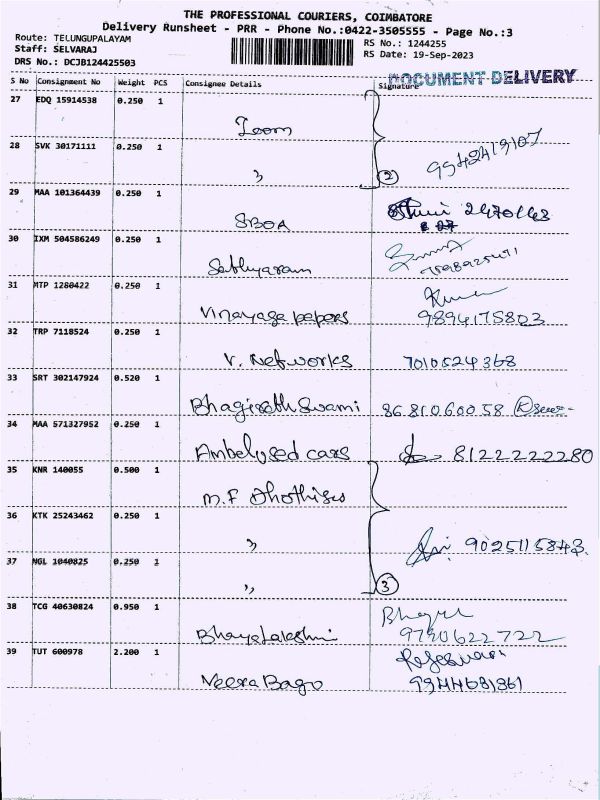 THE PROFESSIONAL COURIERS, COIMBATORE
Delivery Runsheet - PRR - Phone No.:0422-3505555 - Page No.:3
Route: TELUNGUPALAYAM
RS No.: 1244255
Staff: SELVARAJ
RS Date: 19-Sep-2023
DRS No.: DCJB124425503
DOCUMENT DELIVERY
S No Consignment No Weight PCS Consignee Details Signature
27 EDQ 15914538 0.250 1
28 SVK 30171111 0.250 1 " 2
29 MAA 101364439 0.250 1 SBOA
30 IXM 504586249 0.250 1 Sathyaram
31 MTP 1280422 0.250 1 Vinayaga papers 9894175803
32 TRP 7118524 0.250 1 V. Networks 7010524368
33 SRT 302147924 0.520 1 Bhagirath Swami 86 810 600 58
34 MAA 571327952 0.250 1 Ambelused cars 8122222280
35 KNR 140055 0.500 1 M.F Dhothises
36 KTK 25243462 0.250 1 " 9025115843
37 NGL 1040825 0.250 1 " 3
38 TCG 40630824 0.950 1 Bhagalakshmi 9790622722
39 TUT 600978 2.200 1 Veera Bago Rajeswari 9944681861